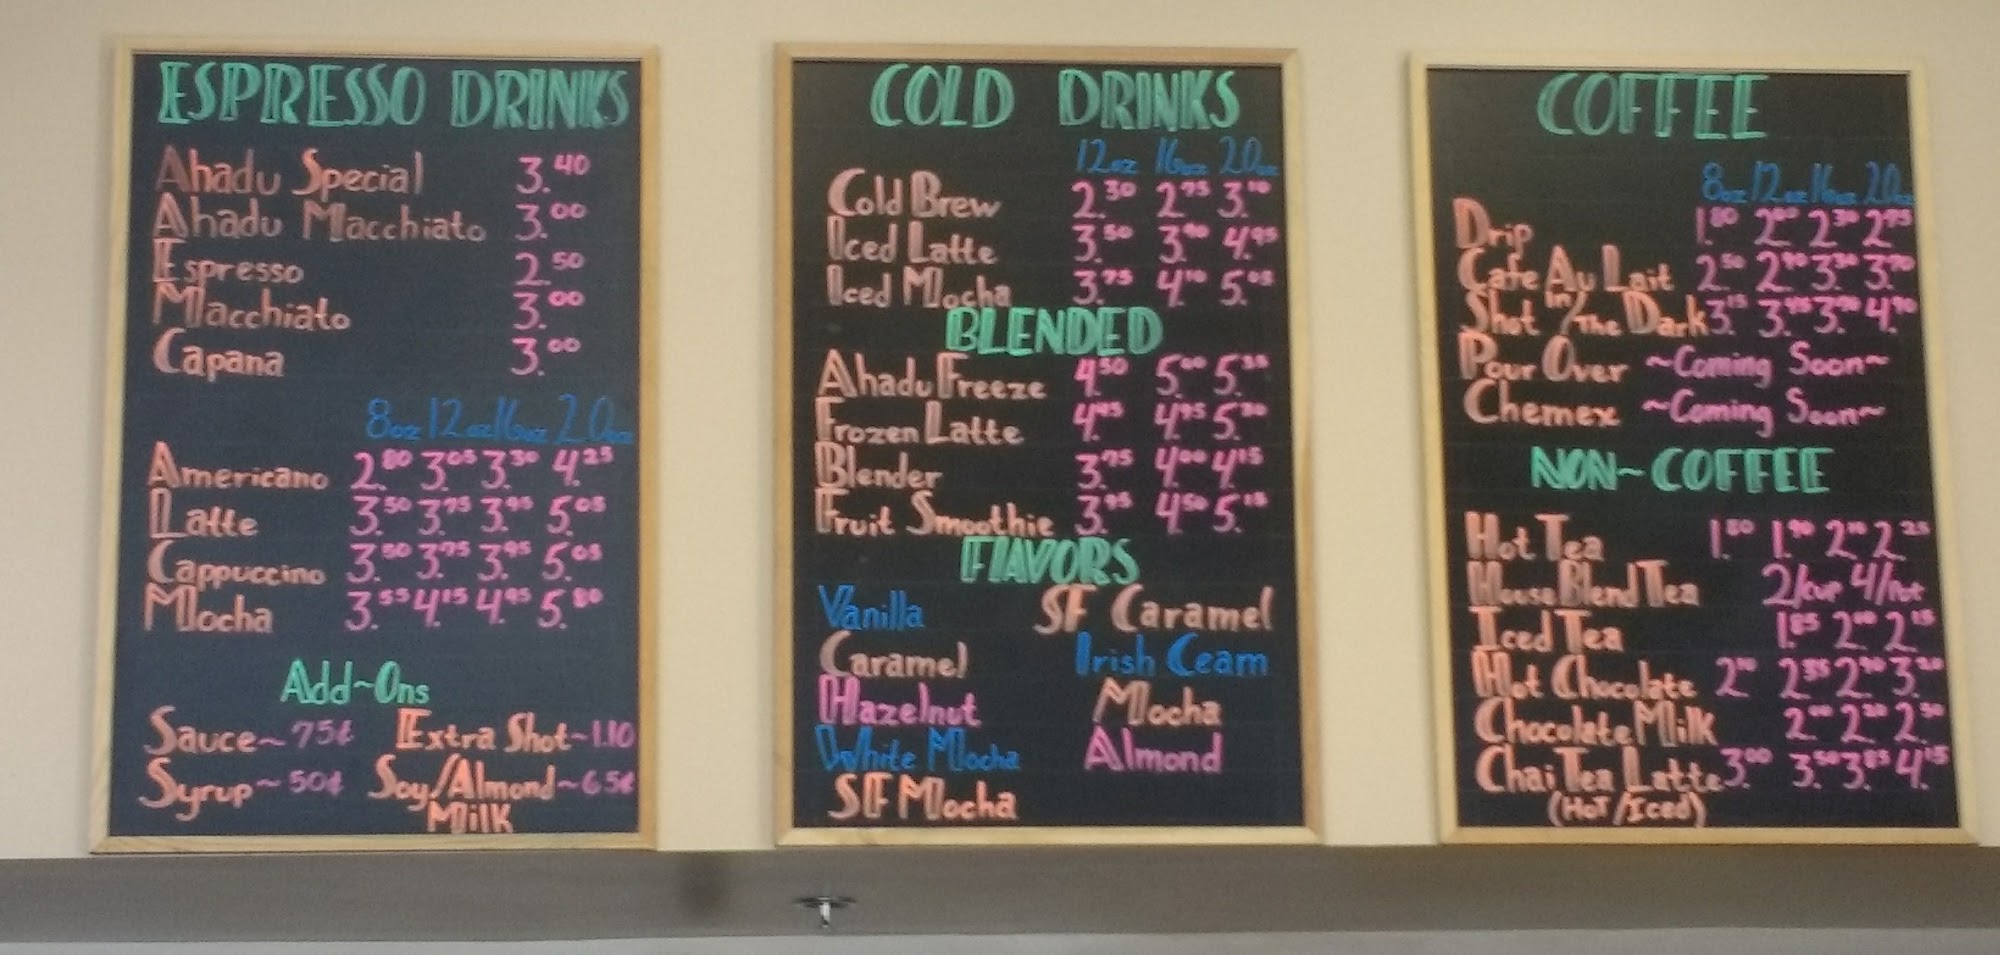 ESPRESSO DRINKS
Ahadu Special 3.40
Ahadu Macchiato 3.00
Espresso 2.50
Macchiato 3.00
Capana 3.00
8oz 12oz 16oz 20oz
Americano 2.80 3.05 3.30 4.25
Latte 3.50 3.75 3.95 5.05
Cappuccino 3.50 3.75 3.95 5.05
Mocha 3.55 4.15 4.95 5.80
Add~Ons
Sauce~75¢ Extra Shot~1.10
Syrup~50¢ Soy/Almond~65¢
Milk
COLD DRINKS
12oz 16oz 20oz
Cold Brew 2.30 2.75 3.10
Iced Latte 3.50 3.90 4.95
Iced Mocha 3.75 4.10 5.05
BLENDED
Ahadu Freeze 4.50 5.00 5.25
Frozen Latte 4.45 4.95 5.20
Blender 3.75 4.00 4.15
Fruit Smoothie 3.95 4.50 5.15
FLAVORS
Vanilla SF Caramel
Caramel Irish Ceam
Hazelnut Mocha
White Mocha Almond
SF Mocha
COFFEE
8oz 12oz 16oz 20oz
Drip 1.80 2.00 2.30 2.75
Cafe Au Lait 2.50 2.90 3.30 3.70
Shot In/The Dark 3.15 3.45 3.90 4.90
Pour Over ~Coming Soon~
Chemex ~Coming Soon~
NON~COFFEE
Hot Tea 1.80 1.90 2.10 2.25
House Blend Tea 2/cup 4/pot
Iced Tea 1.85 2.00 2.15
Hot Chocolate 2.10 2.35 2.90 3.20
Chocolate Milk 2.00 2.20 2.50
Chai Tea Latte 3.00 3.50 3.85 4.15
(Hot/Iced)